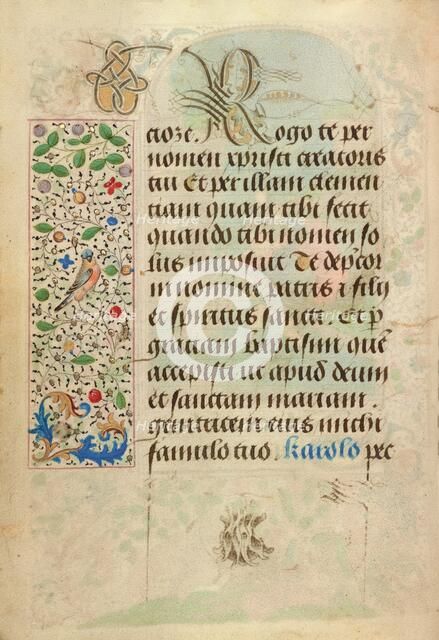 cioze. Rogo te per
nomen xpristi creatoris
tui Et per illam clemen
tiam quam tibi fecit
quando tibi nomen so
lus imposuit Te dep̃cor
in nomine patris ⁊ filij
et spiritus sancti. Et p̱
graciam baptismi quẽ
accepisti ut apud deum
et sanctam mariam.
genitricem eius michi
famulo tuo. karolo pec